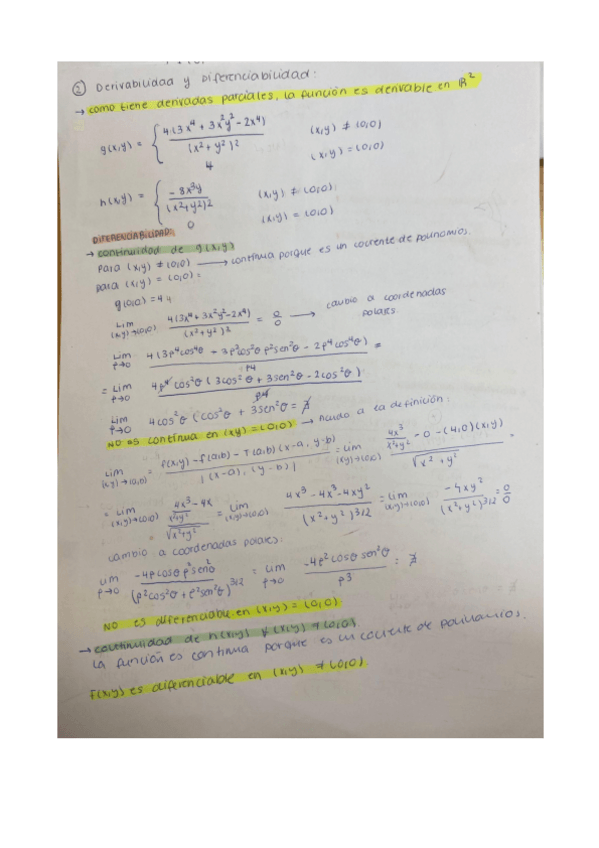 ② Derivabilidad y Diferenciabilidad:
→ como tiene derivadas parciales, la función es derivable en R²
g(x,y) = { 4(3x⁴ + 3x²y² - 2x⁴) / (x² + y²)² (x,y) ≠ (0,0)
4 (x,y) = (0,0)
h(x,y) = { - 8x³y / (x²+y²)2 (x,y) ≠ (0,0)
0 (x,y) = (0,0)
DIFERENCIABILIDAD:
→ continuidad de g(x,y)
Para (x,y) ≠ (0,0) → continua porque es un cociente de polinomios.
para (x,y) = (0,0) =
g(0,0) = 4
Lim (x,y)→(0,0) 4(3x⁴ + 3x²y² - 2x⁴) / (x² + y²)² = 0/0 → cambio a coordenadas
polares.
Lim ρ→0 4(3ρ⁴cos⁴θ + 3ρ²cos²θ ρ²sen²θ - 2ρ⁴cos⁴θ) / ρ4 =
= Lim ρ→0 4ρ⁴ cos²θ (3cos²θ + 3sen²θ - 2cos²θ) / ρ4
Lim ρ→0 4cos²θ (cos²θ + 3sen²θ = ∄
NO es continua en (xy) = (0,0) → Acudo a la definición:
Lim (x,y)→(0,0) = f(x,y) - f(a,b) - T(a,b)(x-a, y-b) / |(x-a), (y-b)| = Lim (x,y)→(0,0) 4x³/x²+y² - 0 - (4,0)(x,y) / √x² + y² =
= Lim (x,y)→(0,0) 4x³ - 4x / x²+y² / √x²+y² = Lim (x,y)→(0,0) 4x³ - 4x³ - 4xy² / (x² + y²)3/2 = Lim (x,y)→(0,0) - 4xy² / (x² + y²)3/2 = 0/0
cambio a coordenadas polares:
Lim ρ→0 -4ρcosθ ρ²senθ² / (ρ²cos²θ + ρ²sen²θ)3/2 = Lim ρ→0 -4ρ² cosθ sen²θ / ρ3 = ∄
NO es diferenciable en (x,y) = (0,0)
→ continuidad de h(x,y) ∀(x,y) ≠ (0,0)
La función es continua porque es un cociente de polinomios.
f(x,y) es diferenciable en (x,y) ≠ (0,0).